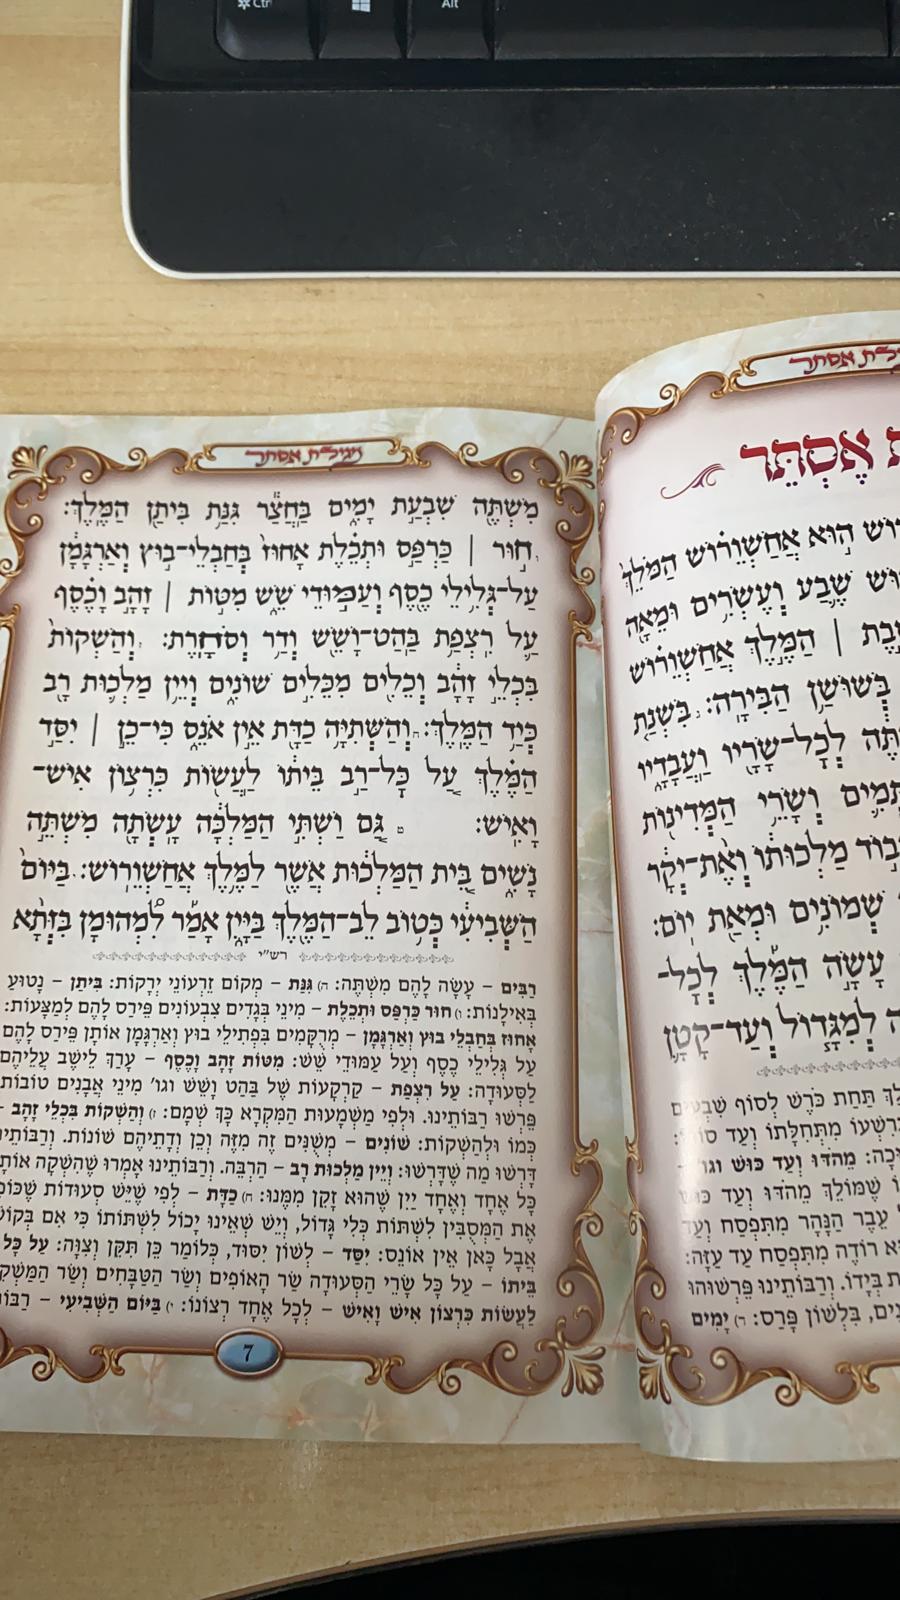 Ctrl
Alt
מגילת אסתר
אֶסְתֵּר
הוּא אֲחַשְׁוֵרוֹשׁ הַמֹּלֵךְ
שֶׁבַע וְעֶשְׂרִים וּמֵאָה
הַמֶּלֶךְ אֲחַשְׁוֵרוֹשׁ
בְּשׁוּשַׁן הַבִּירָה: בִּשְׁנַת
לְכָל־שָׂרָיו וַעֲבָדָיו
וְשָׂרֵי הַמְּדִינוֹת
מַלְכוּתוֹ וְאֶת־יְקָר
שְׁמוֹנִים וּמְאַת יוֹם:
עָשָׂה הַמֶּלֶךְ לְכָל־
לְמִגָּדוֹל וְעַד־קָטָן
תַּחַת כֹּרֶשׁ לְסוֹף שִׁבְעִים
בְּרִשְׁעוֹ מִתְּחִלָּתוֹ וְעַד
מֵהֹדּוּ וְעַד כּוּשׁ וגו'
שֶׁמּוֹלֵךְ מֵהֹדּוּ וְעַד
עֵבֶר הַנָּהָר מִתִּפְסַח וְעַד
רוֹדֶה מִתִּפְסַח עַד עַזָּה:
בְּיָדוֹ. וְרַבּוֹתֵינוּ פֵּרְשׁוּהוּ
בִּלְשׁוֹן פָּרַס: ד) יָמִים
מגילת אסתר
מִשְׁתֶּה שִׁבְעַת יָמִים בַּחֲצַר גִּנַּת בִּיתַן הַמֶּלֶךְ:
חוּר | כַּרְפַּס וּתְכֵלֶת אָחוּז בְּחַבְלֵי־בוּץ וְאַרְגָּמָן
עַל־גְּלִילֵי כֶסֶף וְעַמּוּדֵי שֵׁשׁ מִטּוֹת | זָהָב וָכֶסֶף
עַל רִצְפַת בַּהַט־וָשֵׁשׁ וְדַר וְסֹחָרֶת: וְהַשְׁקוֹת
בִּכְלֵי זָהָב וְכֵלִים מִכֵּלִים שׁוֹנִים וְיֵין מַלְכוּת רָב
כְּיַד הַמֶּלֶךְ: ח וְהַשְּׁתִיָּה כַדָּת אֵין אֹנֵס כִּי־כֵן | יִסַּד
הַמֶּלֶךְ עַל כָּל־רַב בֵּיתוֹ לַעֲשׂוֹת כִּרְצוֹן אִישׁ־
וָאִישׁ: ט גַּם וַשְׁתִּי הַמַּלְכָּה עָשְׂתָה מִשְׁתֵּה
נָשִׁים בֵּית הַמַּלְכוּת אֲשֶׁר לַמֶּלֶךְ אֲחַשְׁוֵרוֹשׁ: בַּיּוֹם
הַשְּׁבִיעִי כְּטוֹב לֵב־הַמֶּלֶךְ בַּיָּיִן אָמַר לִמְהוּמָן בִּזְּתָא
רש"י
רַבִּים – עָשָׂה לָהֶם מִשְׁתֶּה: ה) גִּנַּת – מְקוֹם זֵרְעוֹנֵי יְרָקוֹת: בִּיתַן – נָטוּעַ
בְּאִילָנוֹת: ו) חוּר כַּרְפַּס וּתְכֵלֶת – מִינֵי בְּגָדִים צִבְעוֹנִים פֵּירֵס לָהֶם לְמַצָּעוֹת:
אָחוּז בְּחַבְלֵי בוּץ וְאַרְגָּמָן – מְרֻקָּמִים בִּפְתִילֵי בוּץ וְאַרְגָּמָן אוֹתָן פֵּירֵס לָהֶם
עַל גְּלִילֵי כֶסֶף וְעַל עַמּוּדֵי שֵׁשׁ: מִטּוֹת זָהָב וָכֶסֶף – עָרַךְ לֵישֵׁב עֲלֵיהֶם
לַסְּעוּדָה: עַל רִצְפַת – קַרְקָעוֹת שֶׁל בַּהַט וָשֵׁשׁ וגו' מִינֵי אֲבָנִים טוֹבוֹת
פֵּרְשׁוּ רַבּוֹתֵינוּ. וּלְפִי מַשְׁמָעוּת הַמִּקְרָא כָּךְ שְׁמָם: ז) וְהַשְׁקוֹת בִּכְלֵי זָהָב –
כְּמוֹ וּלְהַשְׁקוֹת: שׁוֹנִים – מְשֻׁנִּים זֶה מִזֶּה וְכֵן וְדָתֵיהֶם שׁוֹנוֹת. וְרַבּוֹתֵינוּ
דָּרְשׁוּ מַה שֶּׁדָּרְשׁוּ: וְיֵין מַלְכוּת רָב – הַרְבֵּה. וְרַבּוֹתֵינוּ אָמְרוּ שֶׁהִשְׁקָה
כָּל אֶחָד וְאֶחָד יַיִן שֶׁהוּא זָקֵן מִמֶּנּוּ: ח) כַדָּת – לְפִי שֶׁיֵּשׁ סְעוּדוֹת
אֶת הַמְסֻבִּין לִשְׁתּוֹת כְּלִי גָּדוֹל, וְיֵשׁ שֶׁאֵינוֹ יָכוֹל לִשְׁתּוֹתוֹ כִּי אִם
אֲבָל כָּאן אֵין אוֹנֵס: יִסַּד – לְשׁוֹן יְסוֹד, כְּלוֹמַר כֵּן תִּקֵּן וְצִוָּה: עַל כָּל
בֵּיתוֹ – עַל כָּל שָׂרֵי הַסְּעוּדָה שַׂר הָאוֹפִים וְשַׂר הַטַּבָּחִים וְשַׂר
לַעֲשׂוֹת כִּרְצוֹן אִישׁ וָאִישׁ – לְכָל אֶחָד רְצוֹנוֹ: י) בַּיּוֹם הַשְּׁבִיעִי –
7